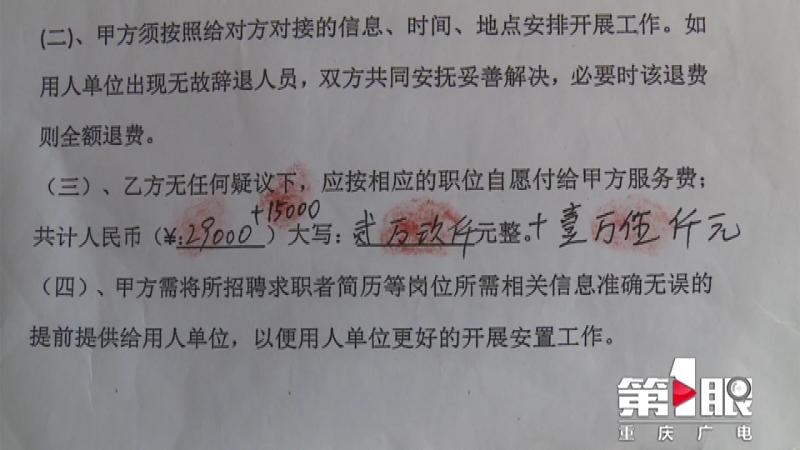 (二)、甲方须按照给对方对接的信息、时间、地点安排开展工作。如
用人单位出现无故辞退人员，双方共同安抚妥善解决，必要时该退费
则全额退费。
（三）、乙方无任何疑议下，应按相应的职位自愿付给甲方服务费；
+15000
共计人民币（¥:29000）大写：贰万玖仟元整。+壹万伍仟元
（四）、甲方需将所招聘求职者简历等岗位所需相关信息准确无误的
提前提供给用人单位，以便用人单位更好的开展安置工作。
第1眼
重庆广电